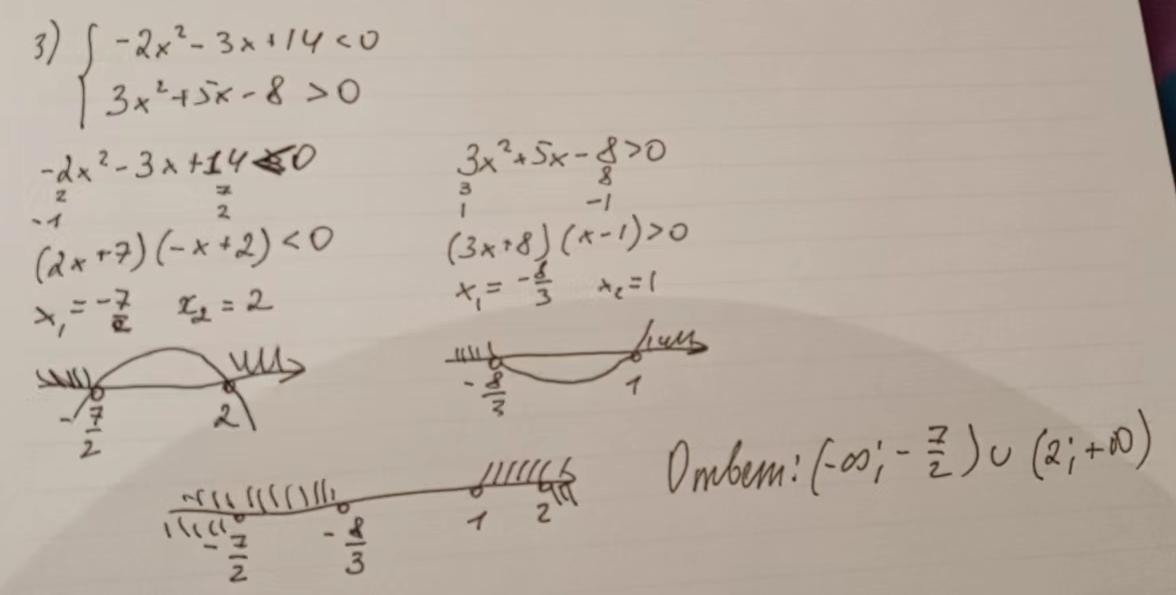 3) { -2x² - 3x + 14 < 0
3x² + 5x - 8 > 0
-2x² - 3x + 14 < 0
2 7
-1 2
(2x + 7)(-x + 2) < 0
x₁ = -7/2 x₂ = 2
-7/2 2
3x² + 5x - 8 > 0
3 8
1 -1
(3x + 8)(x - 1) > 0
x₁ = -8/3 x₂ = 1
-8/3 1
-7/2 -8/3 1 2
Ответ: (-∞; -7/2) ∪ (2; +∞)